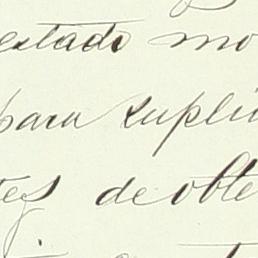 estado mo
para supli
tes de obte